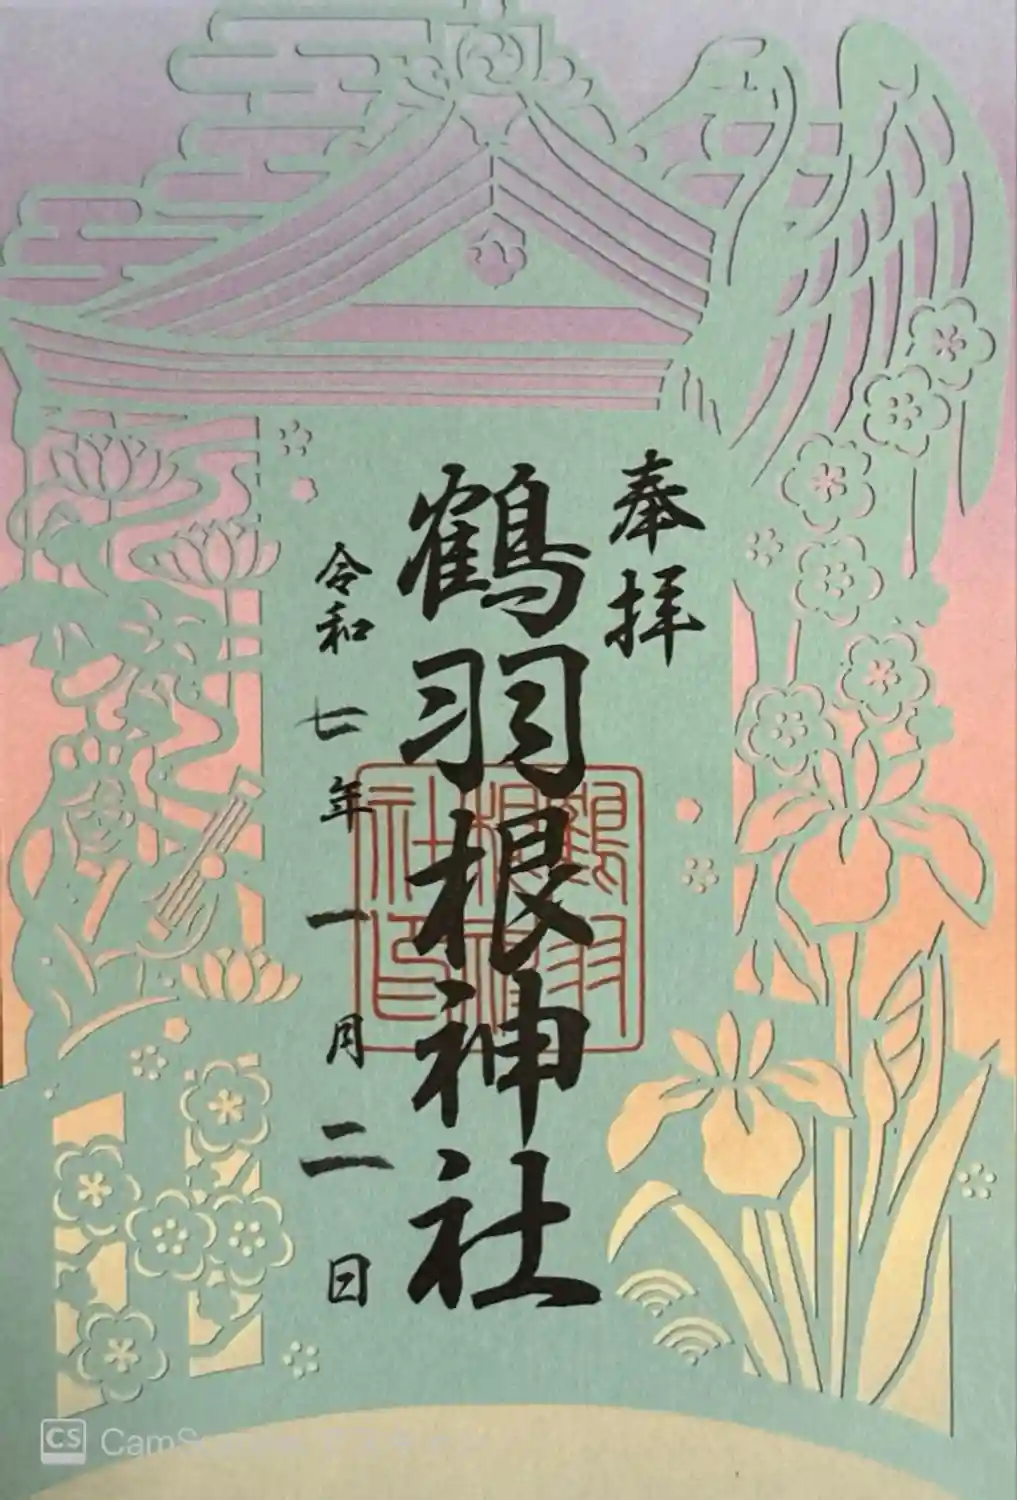 奉拝
鶴羽根神社
令和七年一月二日
鶴羽
根神
社印
CS CamS